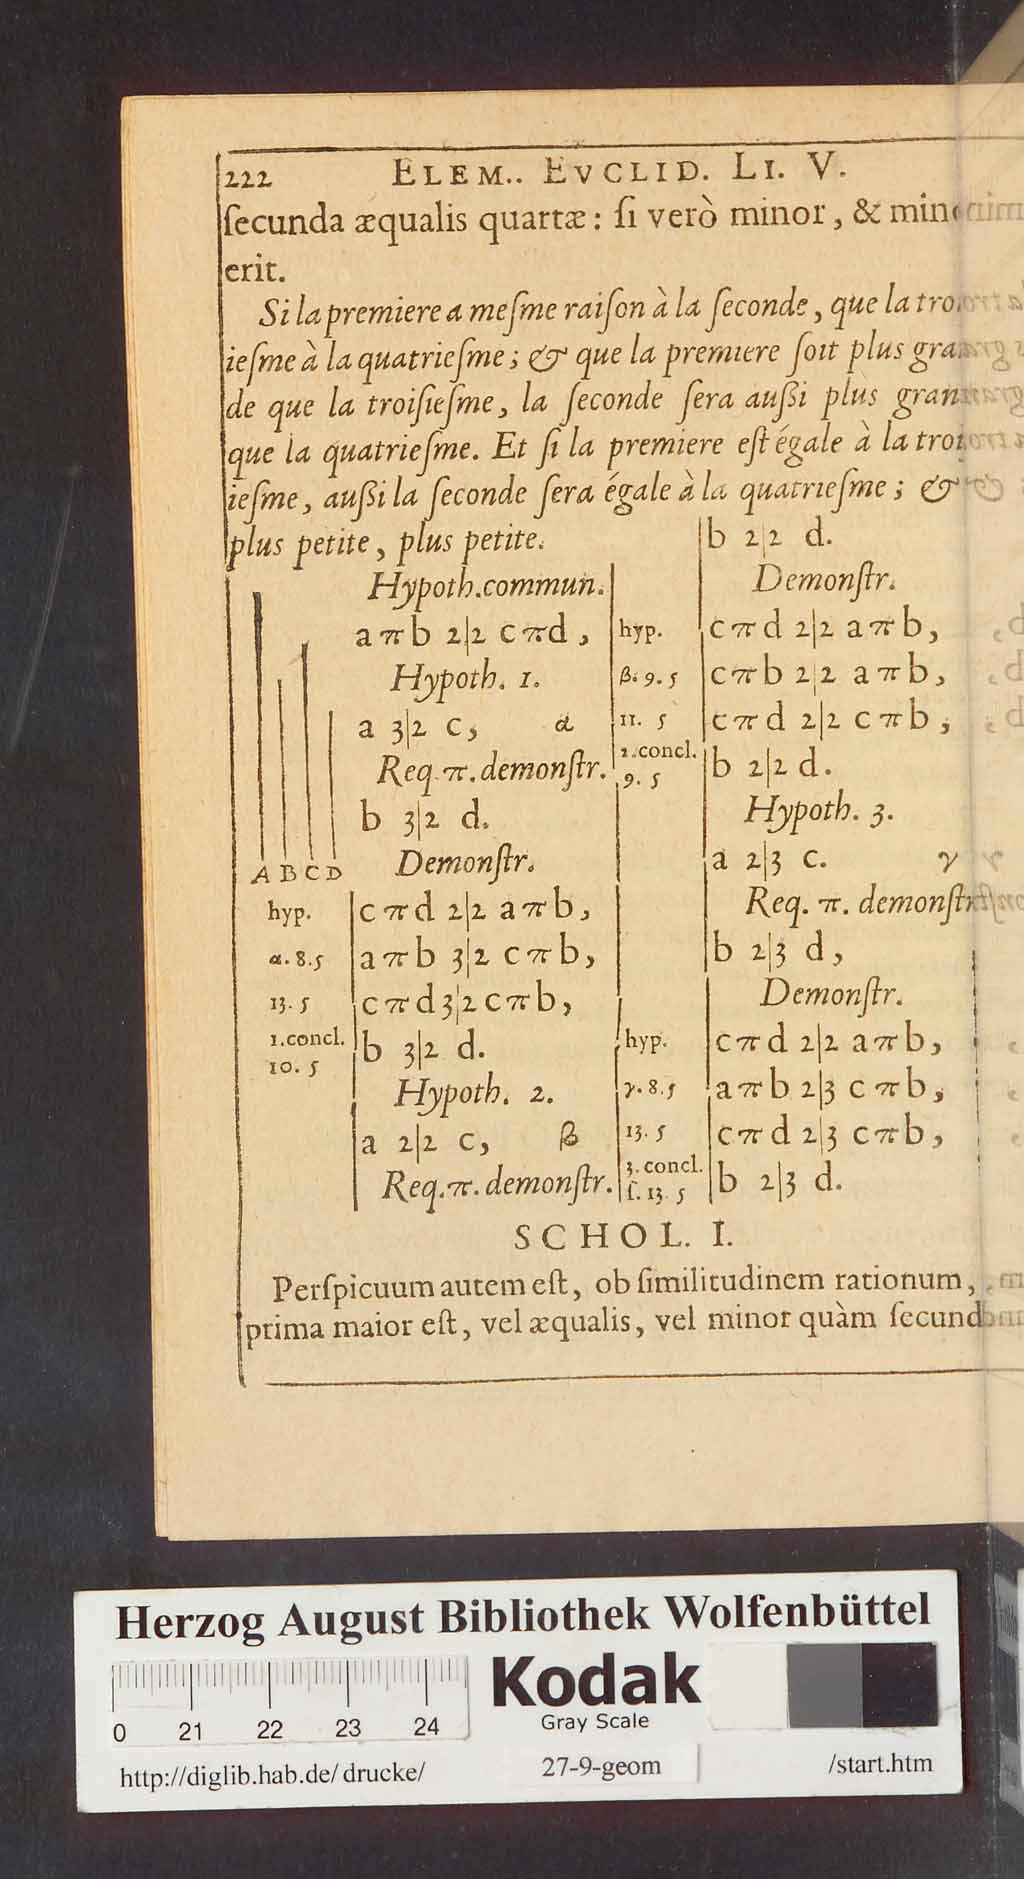 222 ELEM.. EVCLID. LI. V.
ſecunda æqualis quartæ: ſi verò minor, & minor
erit.
Si la premiere a meſme raiſon à la ſeconde, que la tro
ieſme à la quatrieſme; & que la premiere ſoit plus gran
de que la troiſieſme, la ſeconde ſera außi plùs gran
que la quatrieſme. Et ſi la premiere eſt égale à la troi
ieſme, außi la ſeconde ſera égale à la quatrieſme; &
plus petite, plus petite.
Hypoth. commun.
a π b 2|2 c π d,
Hypoth. 1.
a 3|2 c, α
Req. π. demonſtr.
b 3|2 d.
A B C D Demonſtr.
hyp. c π d 2|2 a π b,
α. 8. 5 a π b 3|2 c π b,
13. 5 c π d 3|2 c π b,
1. concl.
10. 5 b 3|2 d.
Hypoth. 2.
a 2|2 c, β
Req. π. demonſtr.
b 2|2 d.
Demonſtr.
hyp. c π d 2|2 a π b,
β. 9. 5 c π b 2|2 a π b,
11. 5 c π d 2|2 c π b,
2. concl.
9. 5 b 2|2 d.
Hypoth. 3.
a 2|3 c. γ
Req. π. demonſtr
b 2|3 d,
Demonſtr.
hyp. c π d 2|2 a π b,
γ. 8. 5 a π b 2|3 c π b,
13. 5 c π d 2|3 c π b,
3. concl.
ſ. 13. 5 b 2|3 d.
SCHOL. I.
Perſpicuum autem eſt, ob ſimilitudinem rationum,
prima maior eſt, vel æqualis, vel minor quàm ſecund
Herzog August Bibliothek Wolfenbüttel
Kodak
Gray Scale
0 21 22 23 24
http://diglib.hab.de/drucke/ 27-9-geom /start.htm